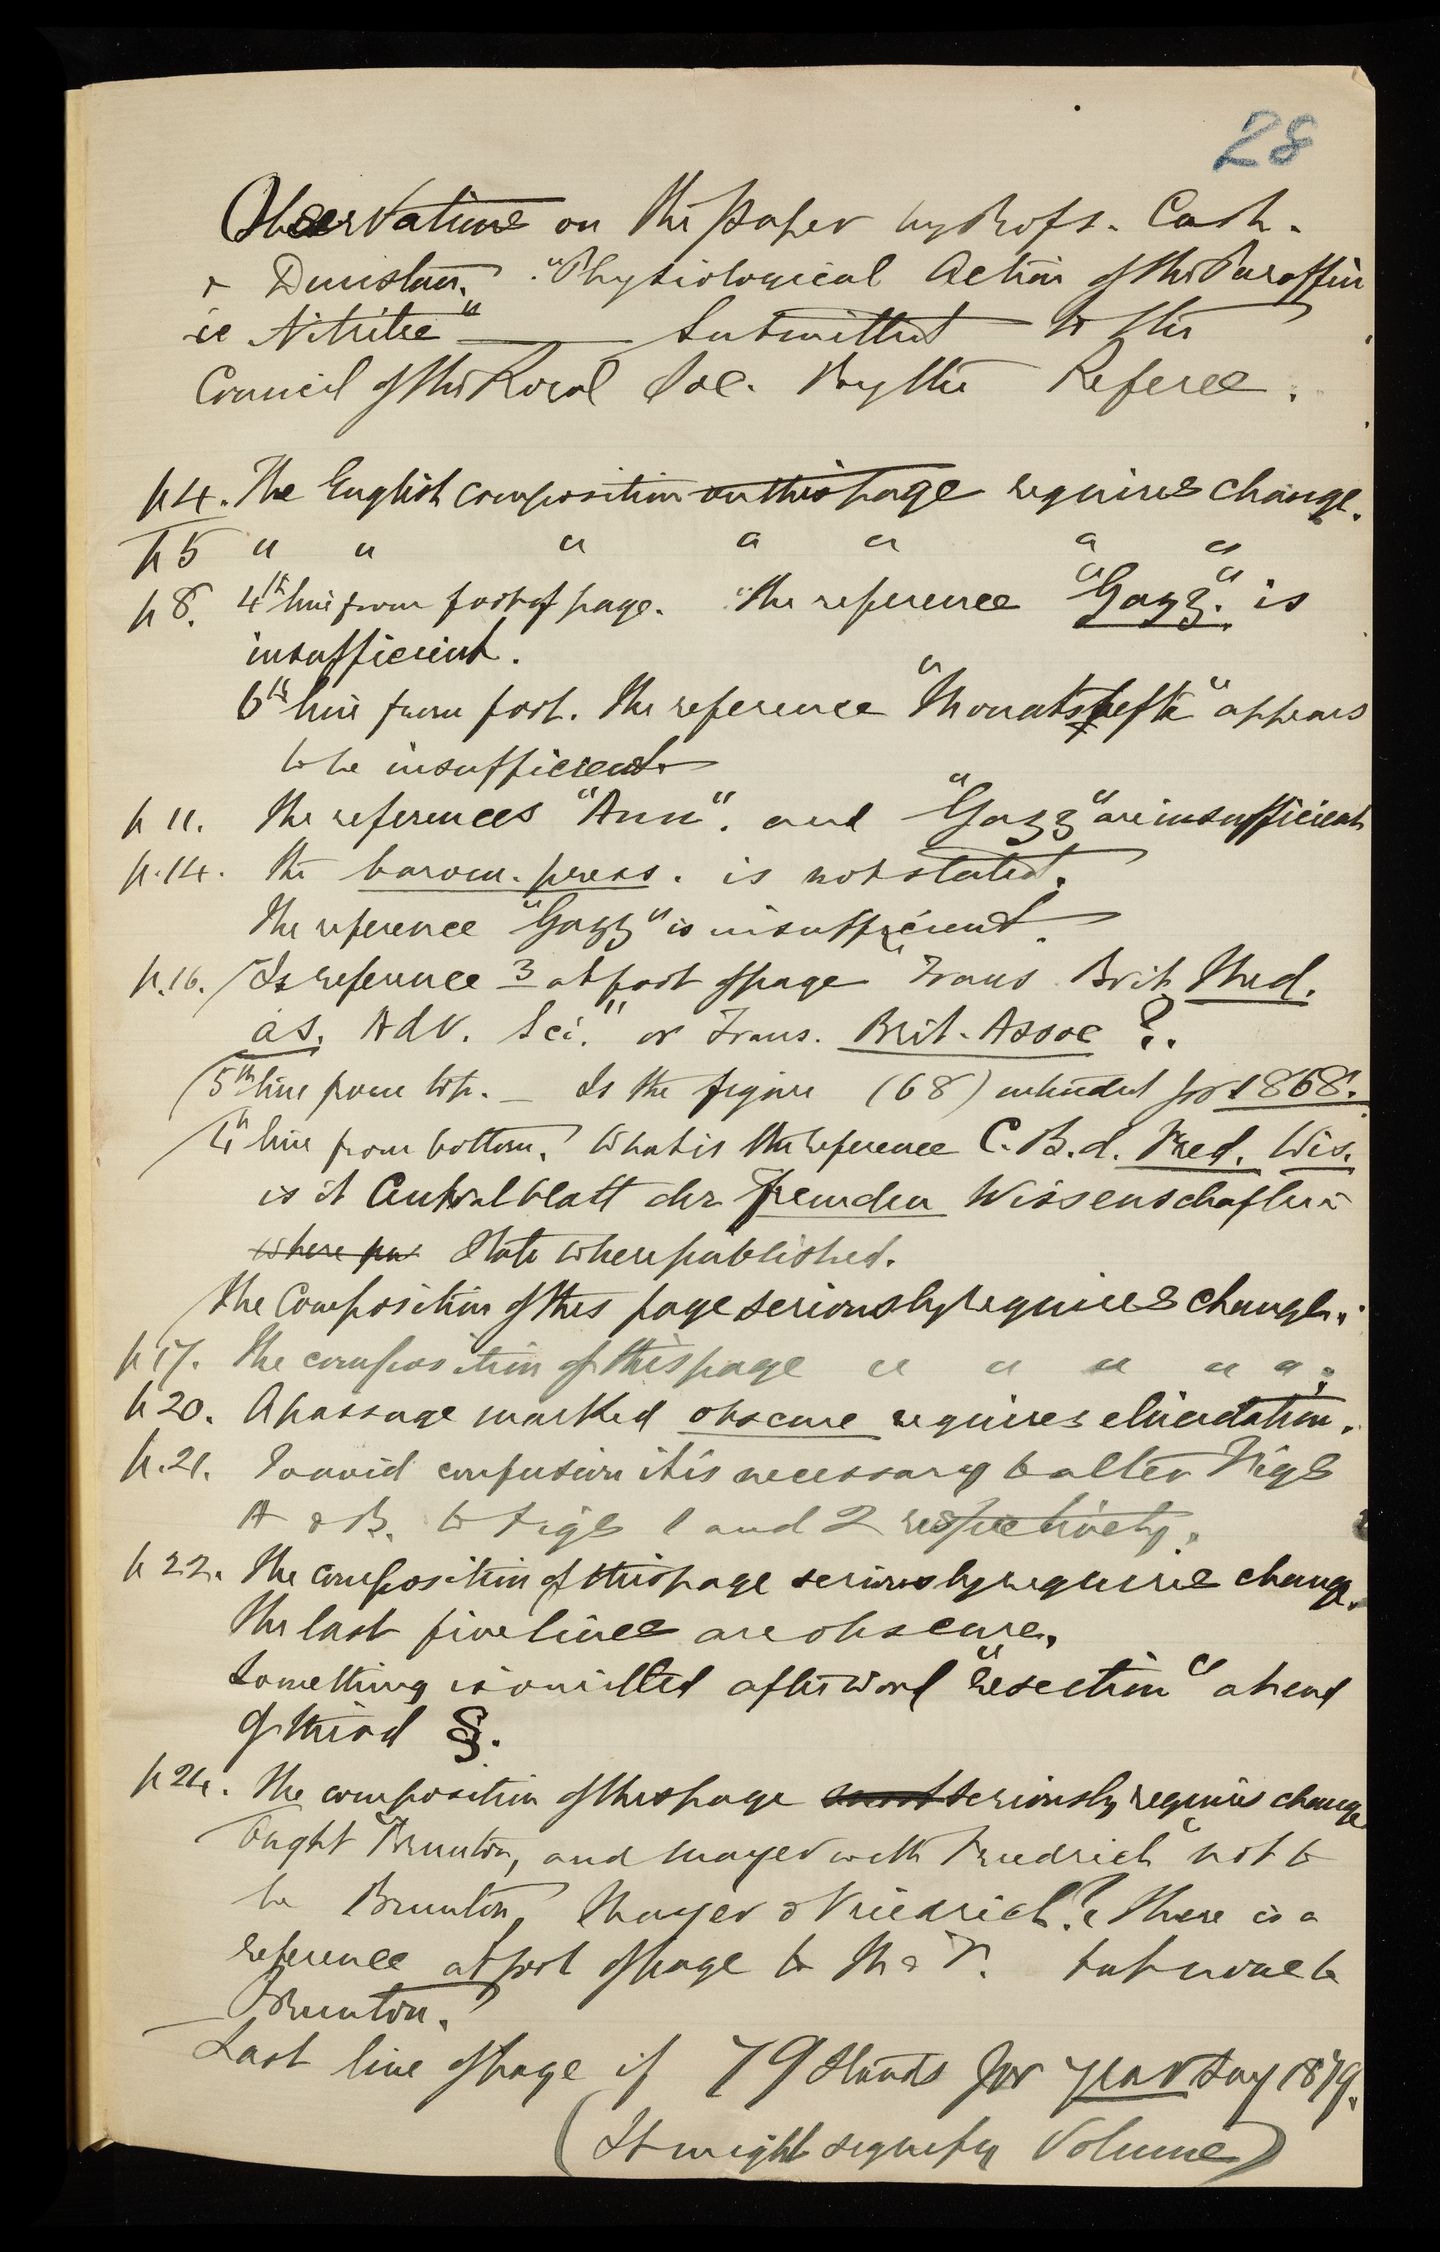 28
Observations on the paper by Profs. Cash.
& Dunstan. "Physiological Action of the Paraffin
ic Nitrites" ___ Submitted to the
Council of the Royal Soc. By the Referee.
p 4. The English composition on this page requires change.
p 5 " " " " " " "
p 8. 4th line from foot of page. The reference "Gazz." is
insufficient.
6th line from foot. The reference "Monatshefte" appears
to be insufficient
p 11. The references "Ann". and "Gazz" are insufficient
p. 14. The barom. press. is not stated.
The reference "Gazz" is insufficient.
p. 16. Is reference 3 at foot of page "Trans Brit Med.
as. Adv. Sci." or Trans. Brit. Assoc ?.
5th line from top. — Is the figure (68) intended for 1868.
4th line from bottom. What is the reference C. B. d. Med. Wis.
is it Centralblatt der fremden Wissenschaften
where pu State where published.
The Composition of this page seriously requires change.
p 17. The composition of this page " " " " "
p 20. A passage marked obscure requires elucidation.
p. 21. To avoid confusion it is necessary to alter Figs
A & B. to Figs 1 and 2 respectively.
p 22. The composition of this page seriously requires change.
The last five lines are obscure.
Something is omitted after word "resection" at end
of third §.
p 24. The composition of this page seriously requires change
Ought "Brunton, and Mayer with Friedrich" not to
be Brunton, Mayer & Friedrich? There is a
reference at foot of page to M & F. but none to
Brunton.
Last line of page if 79 stands for year say 1879.
(It might signify Volume)